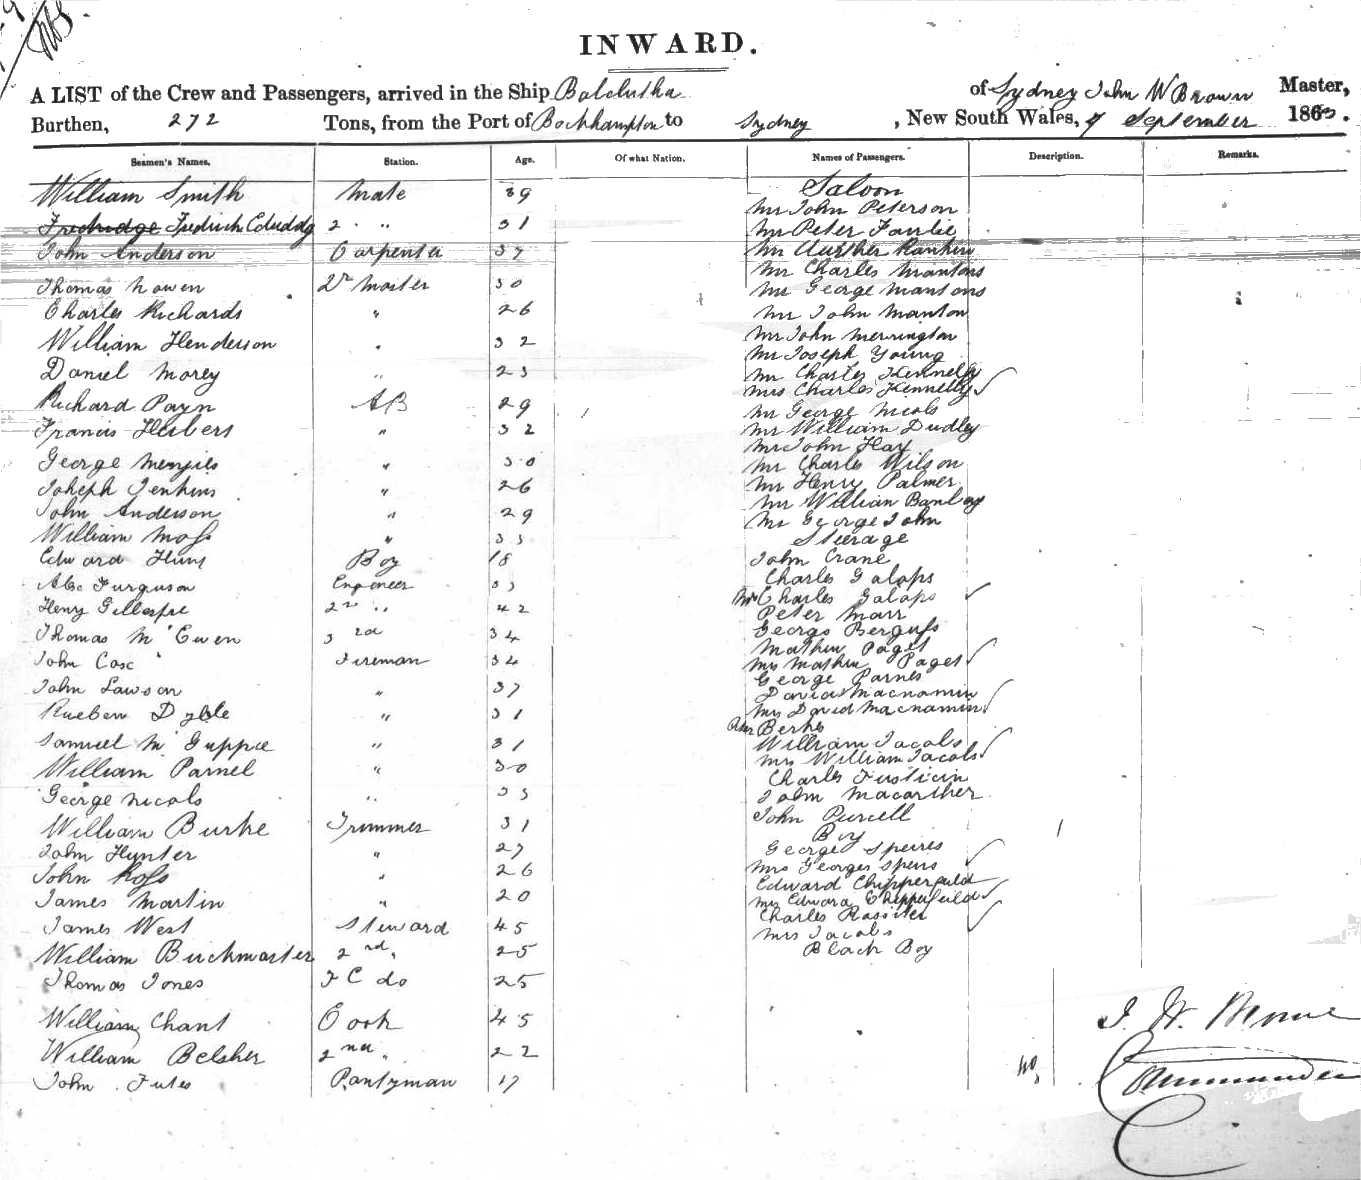 INWARD.
A LIST of the Crew and Passengers, arrived in the Ship Balclutha of Sydney John W Brown Master,
Burthen, 272 Tons, from the Port of Rockhampton to Sydney, New South Wales, 9 September 186
Seamen's Names. Station. Age. Of what Nation. Names of Passengers. Description. Remarks.
William Smith Mate 39
Fredrick 2 " 31
John Anderson Carpenter 37
Thomas Nowen Qr Master 30
Charles Richards " 26
William Henderson " 32
Daniel Morey " 23
Richard Payn AB 29
Francis Herbert " 32
George Menzies " 30
Joheph Jenkins " 26
John Anderson " 29
William Moss " 33
Edward Boy 18
Alex Furguson Engeneer 33
Henry Gillespie 2nd " 42
Thomas McEwen 3rd 34
John Case Fireman 34
John Lawson " 37
Rueben " 31
Samuel McGuppie " 31
William Parnel " 30
George Nicols " 33
William Burke Trimmer 31
John Hynter " 27
John Ross " 26
James Martin " 20
James West Steward 45
William Buckmaster 2nd " 25
Thomas Jones F C do 25
William Chant Cook 45
William Belsher 2nd " 22
John Futes Pantryman 17
Saloon
Mr John Peterson
Mr Peter Fairlie
Mr Aurther Rankin
Mr Charles Mantons
Mr George Mantons
Mr John Manton
Mr John Merrington
Mr Joseph Young
Mr Charles Kennelly
Mrs Charles Kennelly
Mr George Nicols
Mr William Dudley
Mr John Hay
Mr Charles Wilson
Mr Henry Palmer
Mr William Banley
Mr George John
Steerage
John Crane
Charles Galaps
Mrs Charles Galaps
Peter Marr
George Berguss
Mathew Paget
Mrs Mathew Paget
George Parnes
David Macnamin
Mrs David Macnamin
Berks
William Jacobs
Mrs William Jacobs
Charles
John Macarther
John Purcell
Boy
George Speires
Mrs George Speirs
Edward Chipperfield
Mrs Edward Chipperfield
Charles Rassiter
Mrs Jacobs
Black Boy
J. W. Browne
Commander